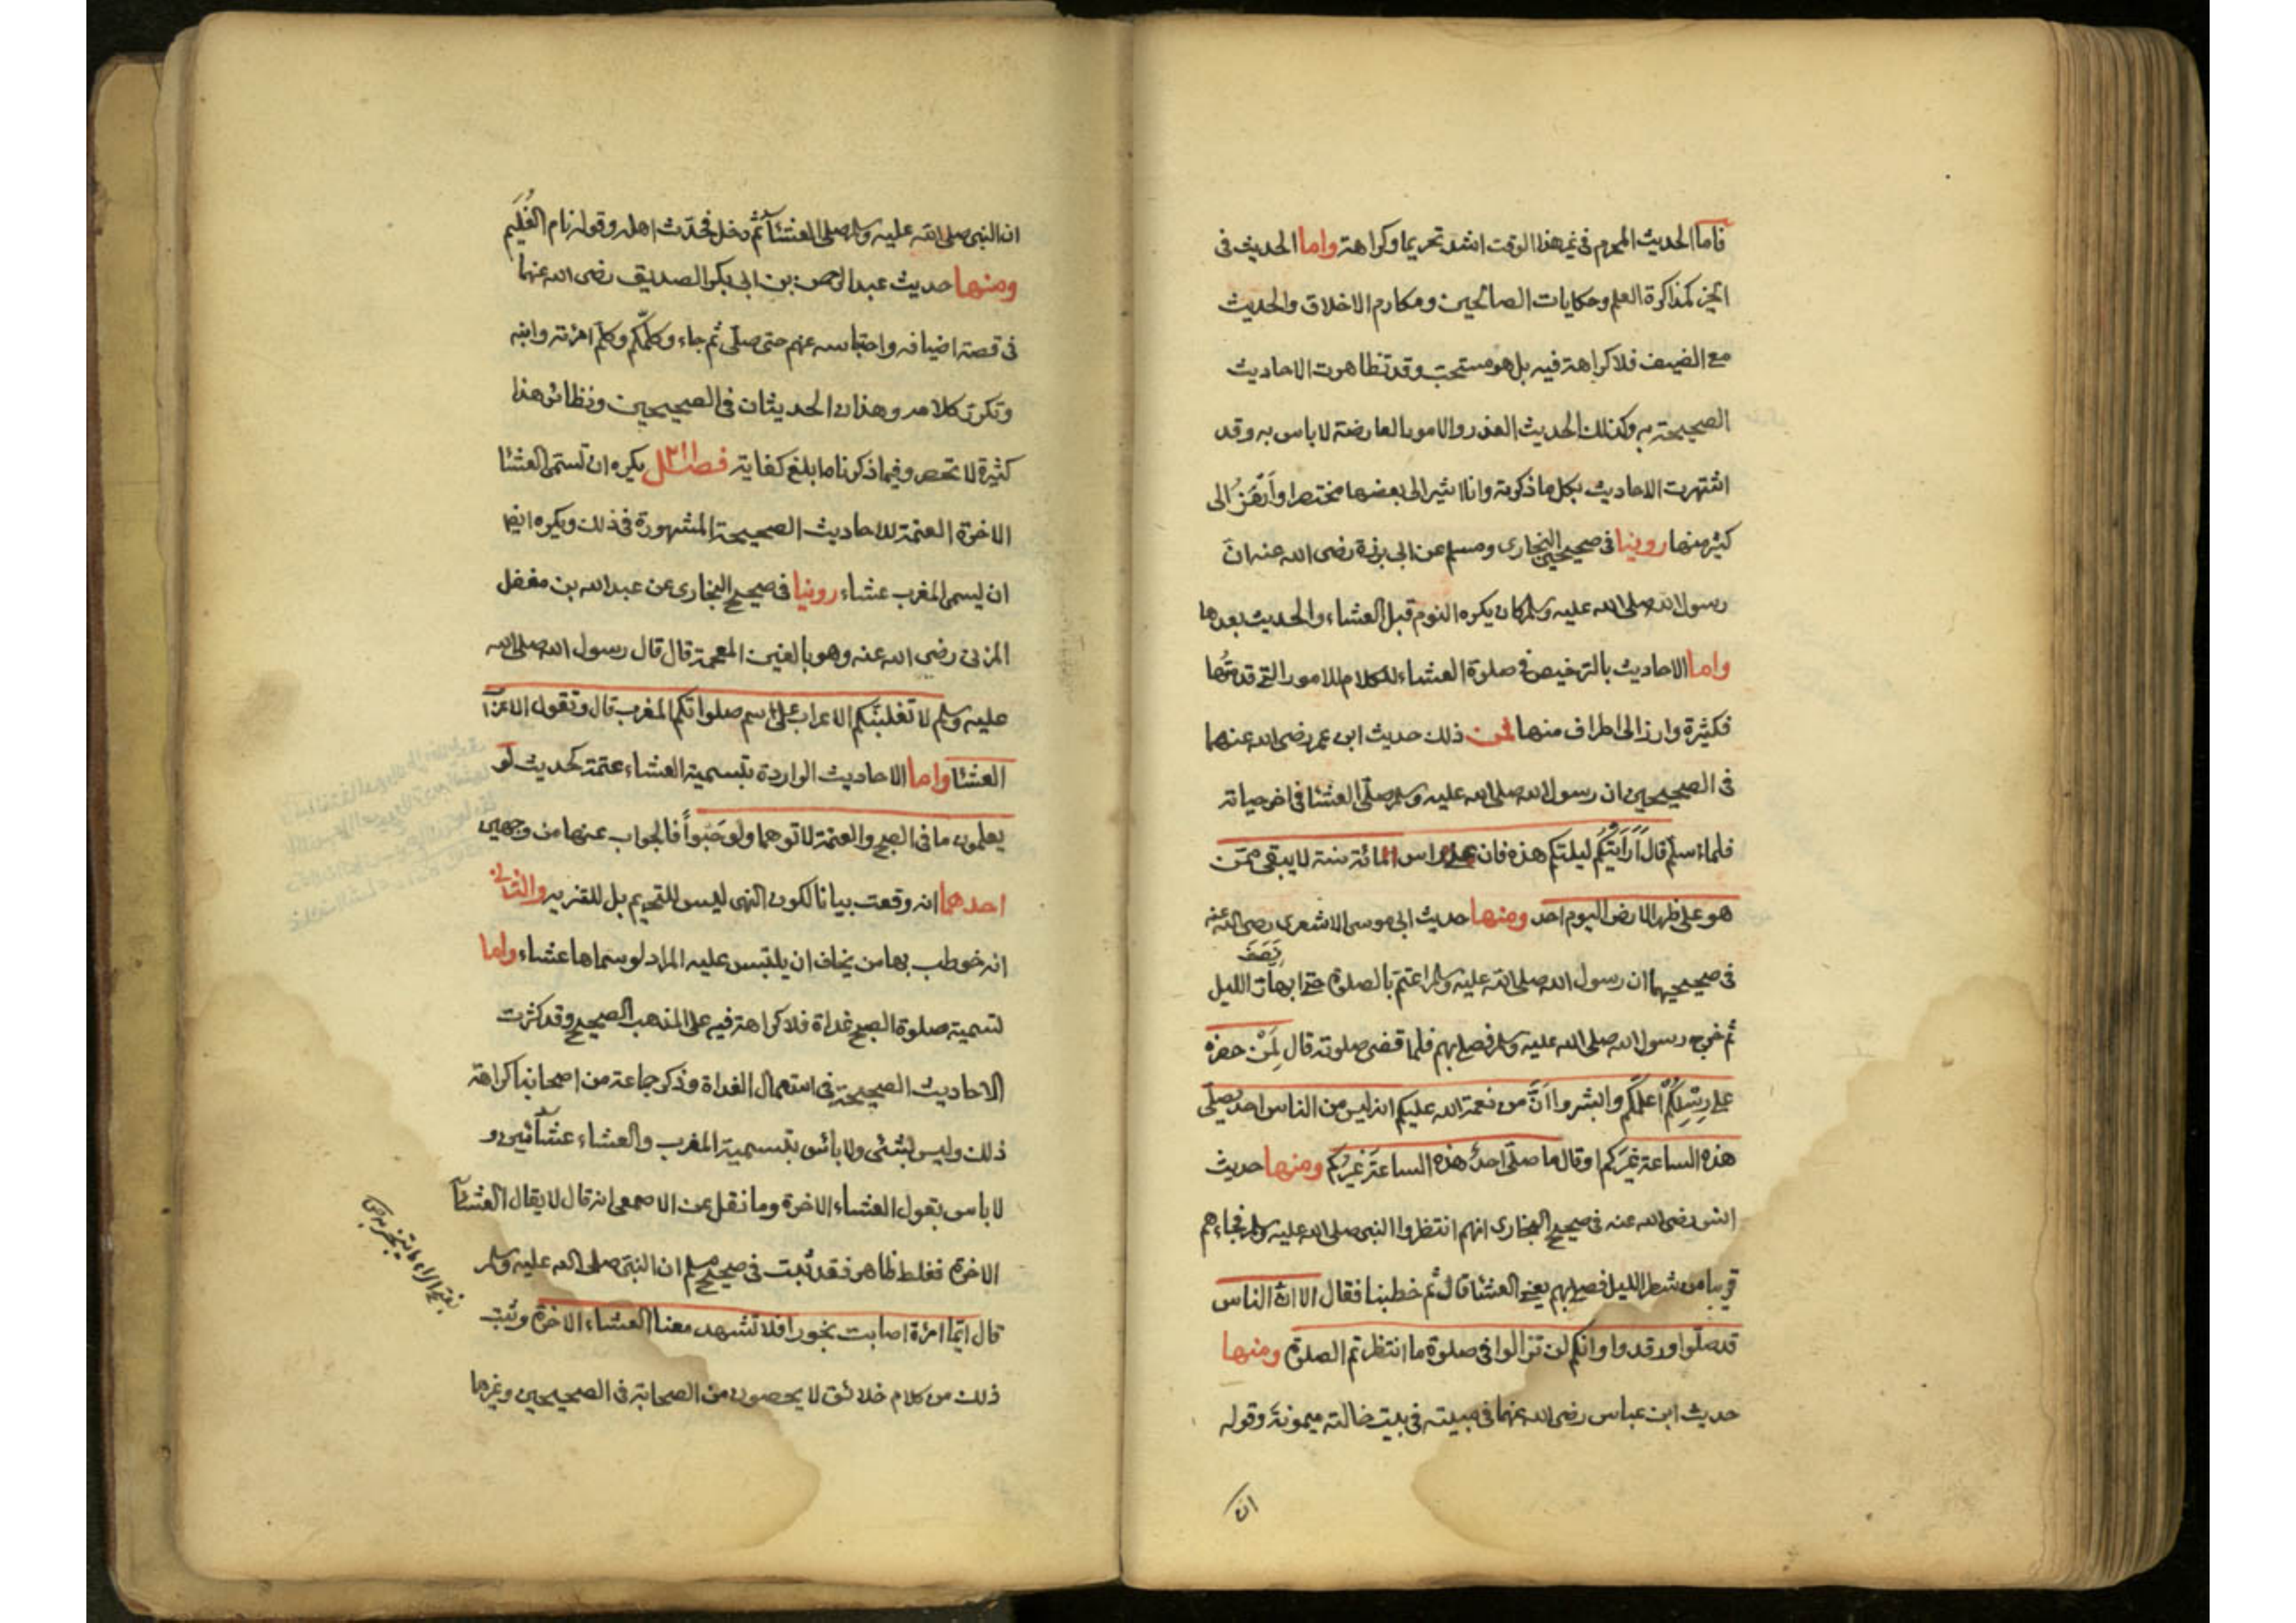 فاما الحديث المحرم فى غير هذا الوقت اشد تحريما وكراهة واما الحديث فى
الخير كمذاكرة العلم وحكايات الصالحين ومكارم الاخلاق والحديث
مع الضيف فلا كراهة فيه بل هو مستحب وقد تظاهرت الاحاديث
الصحيحة به وكذلك الحديث العذر والامور العارضة لا باس به وقد
اشتهرت الاحاديث بكل ما ذكرته وانا اشير الى بعضها مختصرا وارمز الى
كثير منها روينا فى صحيحى البخارى ومسلم عن ابى برزة رضى الله عنه ان
رسول الله صلى الله عليه وسلم كان يكره النوم قبل العشاء والحديث بعدها
واما الاحاديث بالترخيص فى صلوة العشاء للكلام للامور التى قدمتها
فكثيرة وارز الى اطراف منها فمن ذلك حديث ابن عمر رضى الله عنهما
فى الصحيحين ان رسول الله صلى الله عليه وسلم صلى العشا فى اخر حياته
فلما سلم قال اَرَاَيتكُم ليلتكم هذه فان على راس المائة سنة لا يبقى ممن
هو على ظهر الارض اليوم احد ومنها حديث ابى موسى الاشعرى رضى الله عنه
فى صحيحيهما ان رسول الله صلى الله عليه وسلم اعتم بالصلوة حتى ابهار الليل
ثم خرج رسول الله صلى الله عليه وسلم فصلى بهم فلما قضى صلوته قال لِمَنْ حضره
على رِسْلِكُمْ اُعلمكم وابشروا اَنَّ من نعمة الله عليكم انه ليس من الناس احد يصلى
هذه الساعة غيركم او قال ما صلى احدٌ هذه الساعة غيركم ومنها حديث
انس رضى الله عنه فى صحيح البخارى انهم انتظروا النبى صلى الله عليه وسلم فجاءهم
قريبا من شطر الليل فصلى بهم يعنى العشا قال ثم خطبنا فقال الا ان الناس
قد صلوا ورقدوا وانكم لن تزالوا فى صلوة ما انتظرتم الصلوة ومنها
حديث ابن عباس رضى الله عنهما فى مبيته فى بيت خالته ميمونة وقوله
ان
ان النبى صلى الله عليه وسلم صلى العشآ ثم دخل فحدّث اهله وقوله نام الغُلَيّم
ومنها حديث عبد الرحمن بن ابى بكر الصديق رضى الله عنهما
فى قصة اضيافه واحتباسه عنهم حتى صلّى ثم جاء وكلّمكم وكلّم امرئته وابنه
وتكرّر كلامه وهذان الحديثان فى الصحيحين ونظائر هذا
كثيرة لا تحصر وفيما ذكرناه ما بلغ كفاية فصل يكره ان تسمى العشا
الاخرة العتمة للاحاديث الصحيحة المشهورة فى ذلك ويكره ايضا
ان ليسمى المغرب عشاء روينا فى صحيح البخارى عن عبد الله بن مغفل
المزنى رضى الله عنه وهو بالغين المعجمة قال قال رسول الله صلى الله
عليه وسلم لا تغلبنّكم الاعراب على اسم صلواتكم المغرب قال وتقول الاعراب
العشا واما الاحاديث الواردة بتسمية العشاء عتمة كحديث لو
يعلمون ما فى الصبح والعتمة لاتوهما ولو حَبْواً فالجواب عنها من وجهين
احدهما انه وقعت بيانا لكون النهى ليس للتحريم بل للتنزيه والثانى
انه خوطب بها من يخاف ان يلتبس عليه المراد لو سماها عشاء واما
تسمية صلوة الصبح غداة فلا كراهة فيه على المذهب الصحيح وقد كثرت
الاحاديث الصحيحة فى استعمال الغداة وذكر جماعة من اصحابنا كراهة
ذلك وليس بشئى ولا بائس بتسمية المغرب والعشاء عشآئين و
لا باس بقول العشاء الاخرة وما نقل عن الاصمعى انه قال لا يقال العشآء
الاخرة فغلط ظاهر فقد ثبت فى صحيح مسلم ان النبى صلى الله عليه وسلم
قال ايّما امرئة اصابت بخورا فلا تشهد معنا العشاء الاخرة وثبت
ذلك من كلام خلائق لا يحصون من الصحابة فى الصحيحين وغيرها